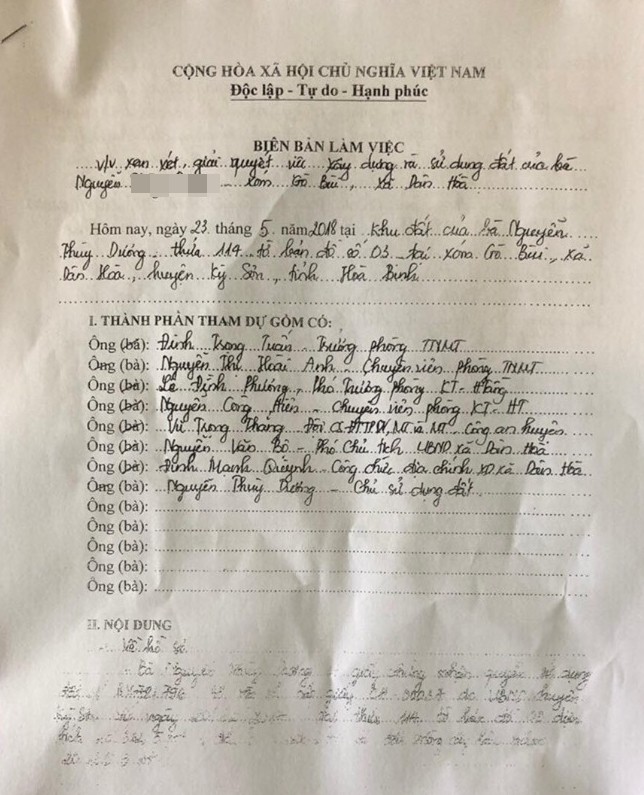 CỘNG HÒA XÃ HỘI CHỦ NGHĨA VIỆT NAM
Độc lập - Tự do - Hạnh phúc
BIÊN BẢN LÀM VIỆC
v/v xem xét, giải quyết việc xây dựng và sử dụng đất của bà
Nguyễn - xóm Gò Bùi, xã Dân Hoà
Hôm nay, ngày 23 tháng 5 năm 2018 tại khu đất của bà Nguyễn
Thùy Dương - thửa 114 tờ bản đồ số 03 tại xóm Gò Bùi, xã
Dân Hoà, huyện Kỳ Sơn, tỉnh Hoà Bình
I. THÀNH PHẦN THAM DỰ GỒM CÓ:
Ông (bà): Đinh Trọng Tuấn - Trưởng phòng TNMT
Ông (bà): Nguyễn Thị Hoài Anh - Chuyên viên phòng TNMT
Ông (bà): Lê Đình Phương, Phó Trưởng phòng KT - Hạ tầng
Ông (bà): Nguyễn Công Hiên - chuyên viên phòng KT - HT
Ông (bà): Vũ Trọng Thắng - Đội Công an huyện
Ông (bà): Nguyễn Văn Bộ - Phó Chủ tịch UBND xã Dân Hoà
Ông (bà): Đinh Mạnh Quỳnh - Công chức địa chính XD xã Dân Hoà
Ông (bà): Nguyễn Thùy Dương - Chủ sử dụng đất
Ông (bà):
Ông (bà):
Ông (bà):
Ông (bà):
Ông (bà):
II. NỘI DUNG
Về hồ sơ
Bà Nguyễn giấy chứng nhận quyền
do UBND huyện
Kỳ Sơn ngày